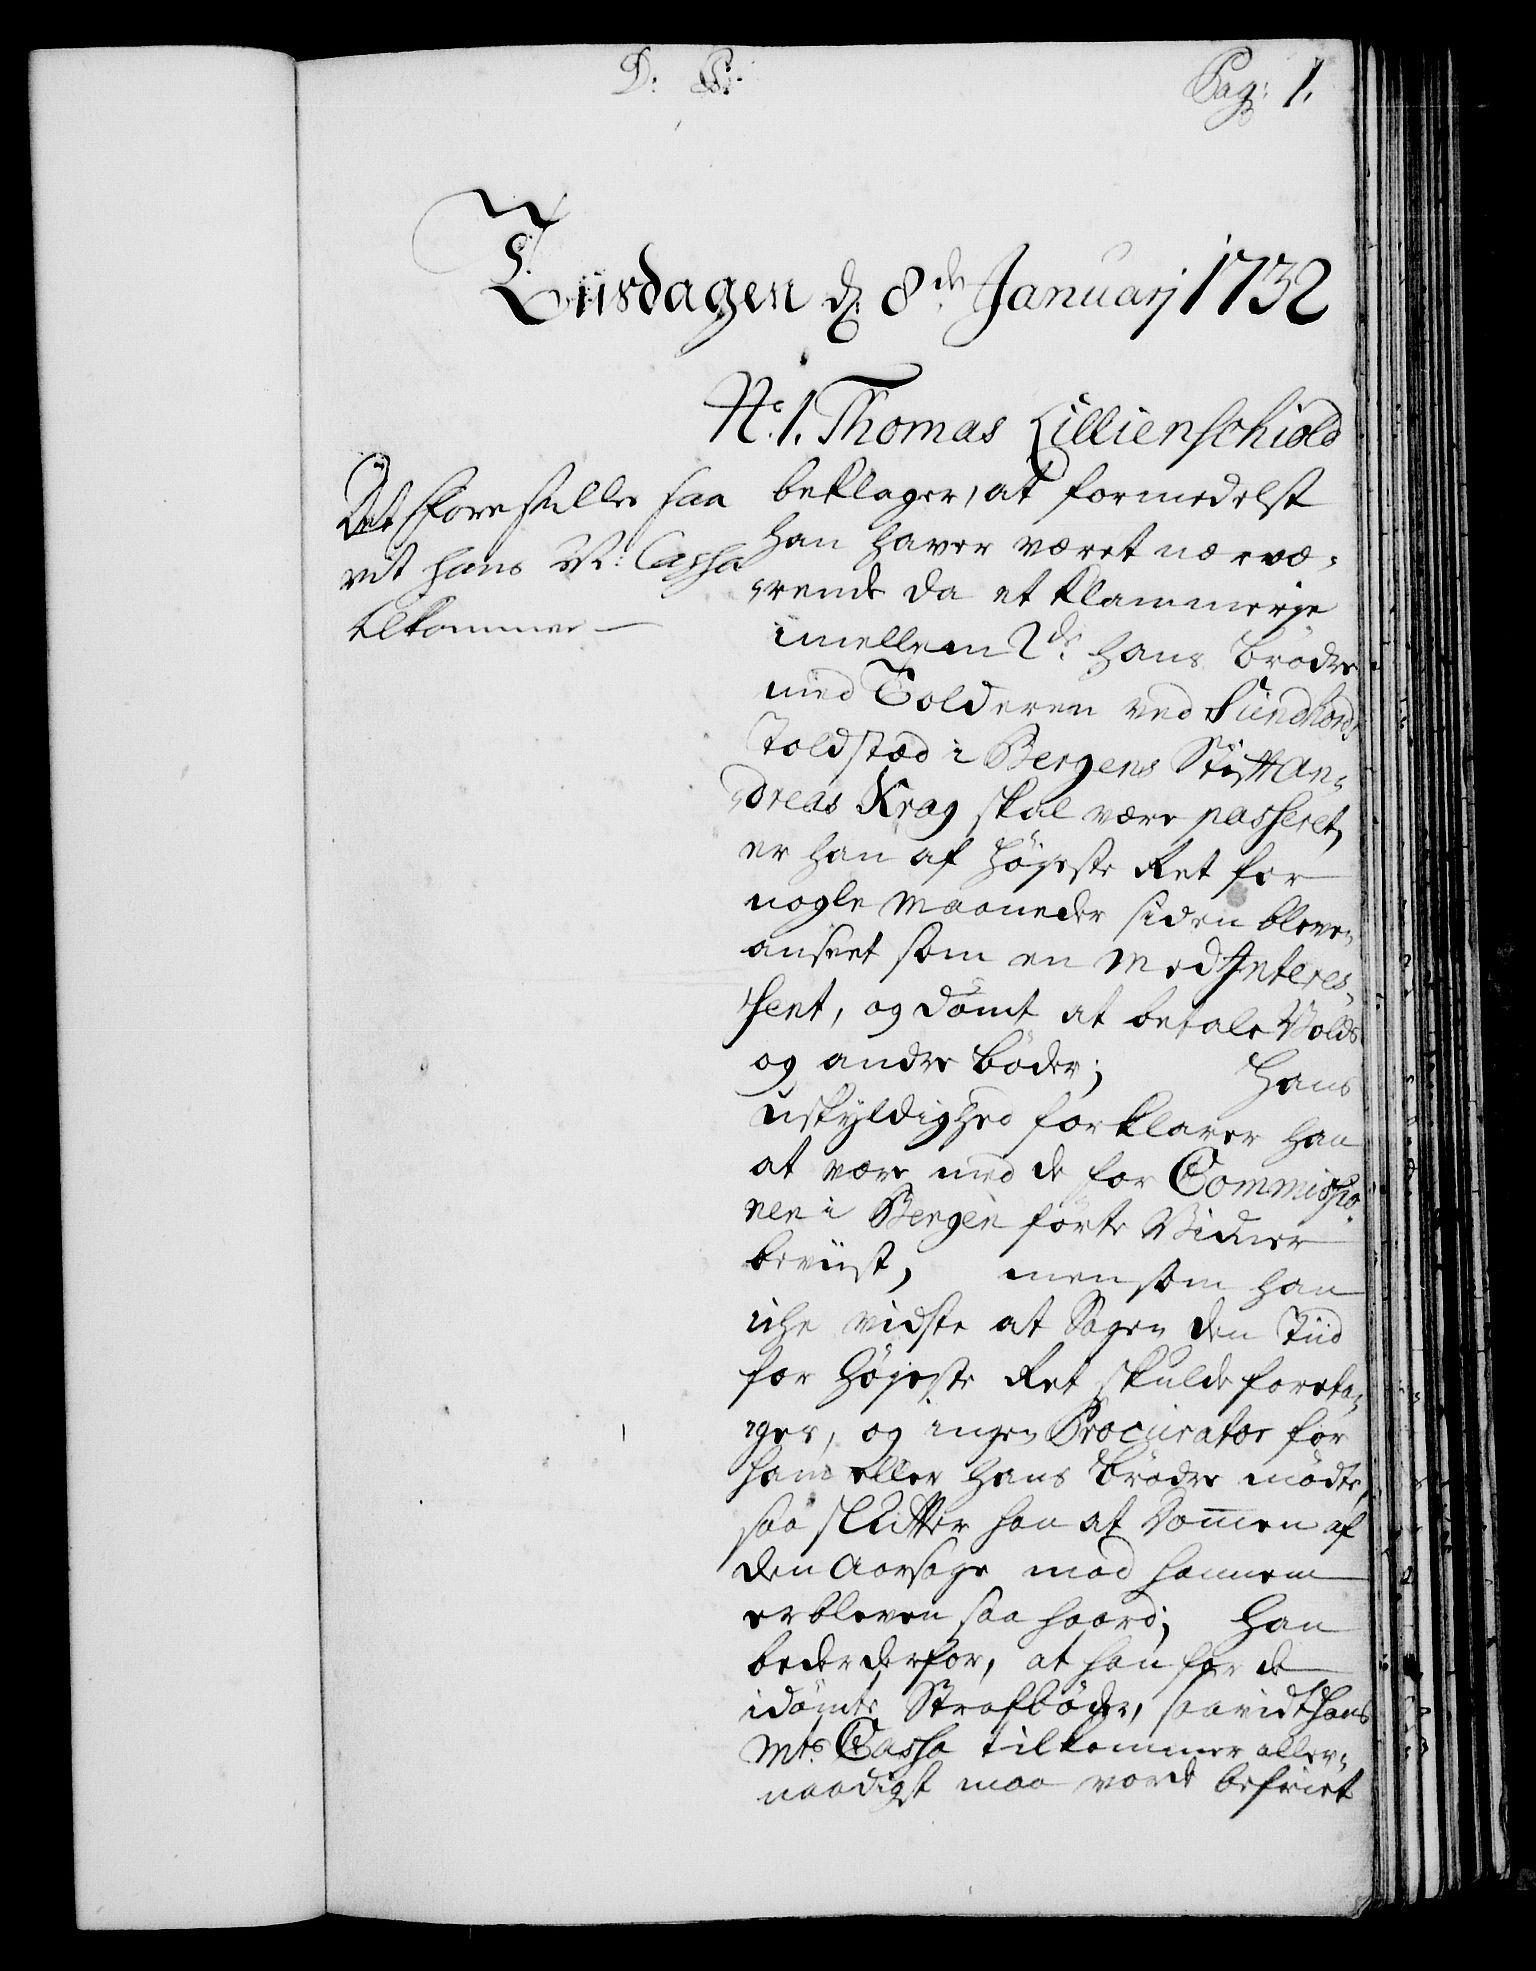 D: C:
Pag: 1.
Tiisdagen d. 8de Januarj 1732
No. 1. Thomas Lillienschiold
Det forestilles saa
vit hans M: Cassa
tilkommer
beklager, at formedelst
han haver været nærvæ-
rende da et klammerje
imellem 2de hans brødre
med Tolderen ved Sundhords
Toldsted i Bergens Stift An-
dreas Krag skal være passeret,
er han af Højeste Ret for
nogle Maaneder siden bleven
anseet som en Med Interes-
sent, og dømt at betale Volds
og andre bøder; Hans
uskyldighed forklarer han
at være med de for Commissio-
nen i Bergen førte Vidner
beviist, men som han
iche vidste at Sagen den Tiid
for Højeste Ret skulde foreta-
ges, og ingen Procurator for
ham eller hans brødre mødte,
saa slutter han at Dommen af
den aarsage mod hannem
er bleven saa haard; Han
beder derfor, at han for de
idømte Strafbøder, saavidt Hans
Mts Cassa tilkommer aller-
naadigst maa vorde befriet